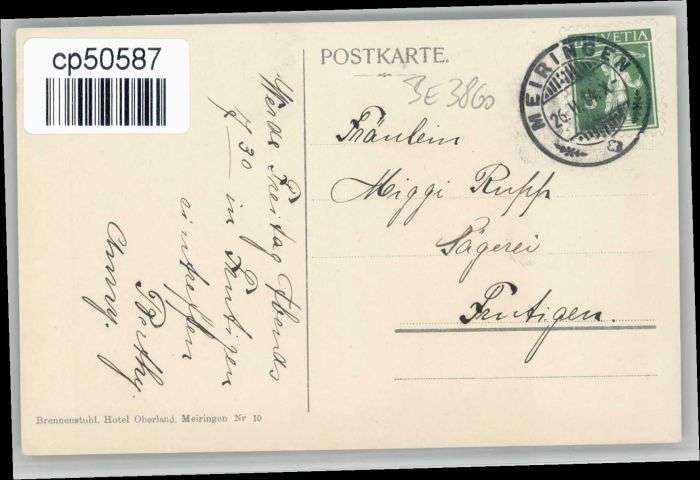 cp50587
POSTKARTE.
BE 3860
HELVETIA
MEIRINGEN
Fräulein
Miggi Rupp
Sägerei
Frutigen.
Werde Freitag Abends
7 30 in Frutigen
eintreffen
Berthy.
Brennenstuhl, Hotel Oberland, Meiringen Nr 10